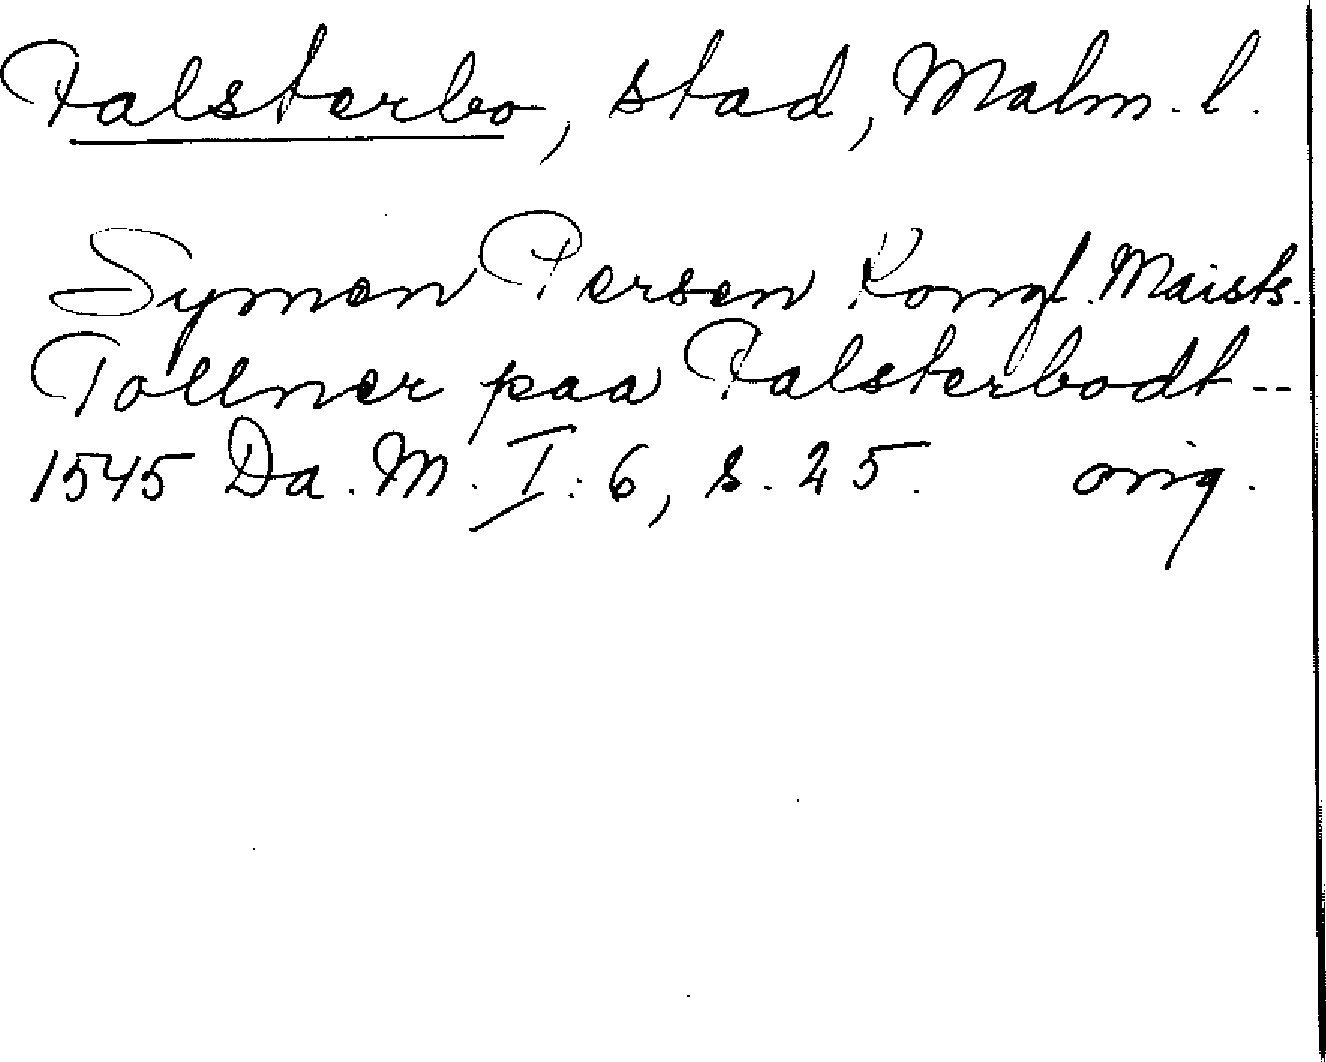 Falsterbo, stad, Malm. l.
Symen Persen Kongl. Maists.
Tollner paa Falsterbodt --
1545 Da. M. I: 6, s. 25. orig.